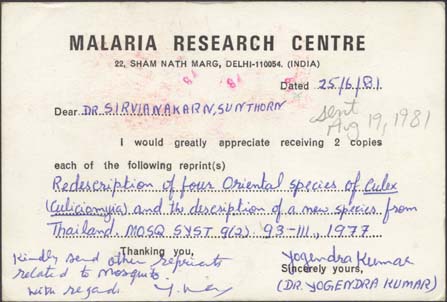 MALARIA RESEARCH CENTRE
22, SHAM NATH MARG, DELHI-110054. (INDIA)
Dated 25/6/81
Dear DR. SIRVIANAKARN, SUNTHORN
sent
Aug 19, 1981
I would greatly appreciate receiving 2 copies
each of the following reprint(s)
Redescription of four Oriental species of Culex
(Culiciomyia) and the description of a new species from
Thailand. MOSQ SYST 9(2). 93-111, 1977
Thanking you,
Kindly send other reprints
related to Mosquito.
with regards.
Yogendra Kumar
Sincerely yours,
(DR. YOGENDRA KUMAR)